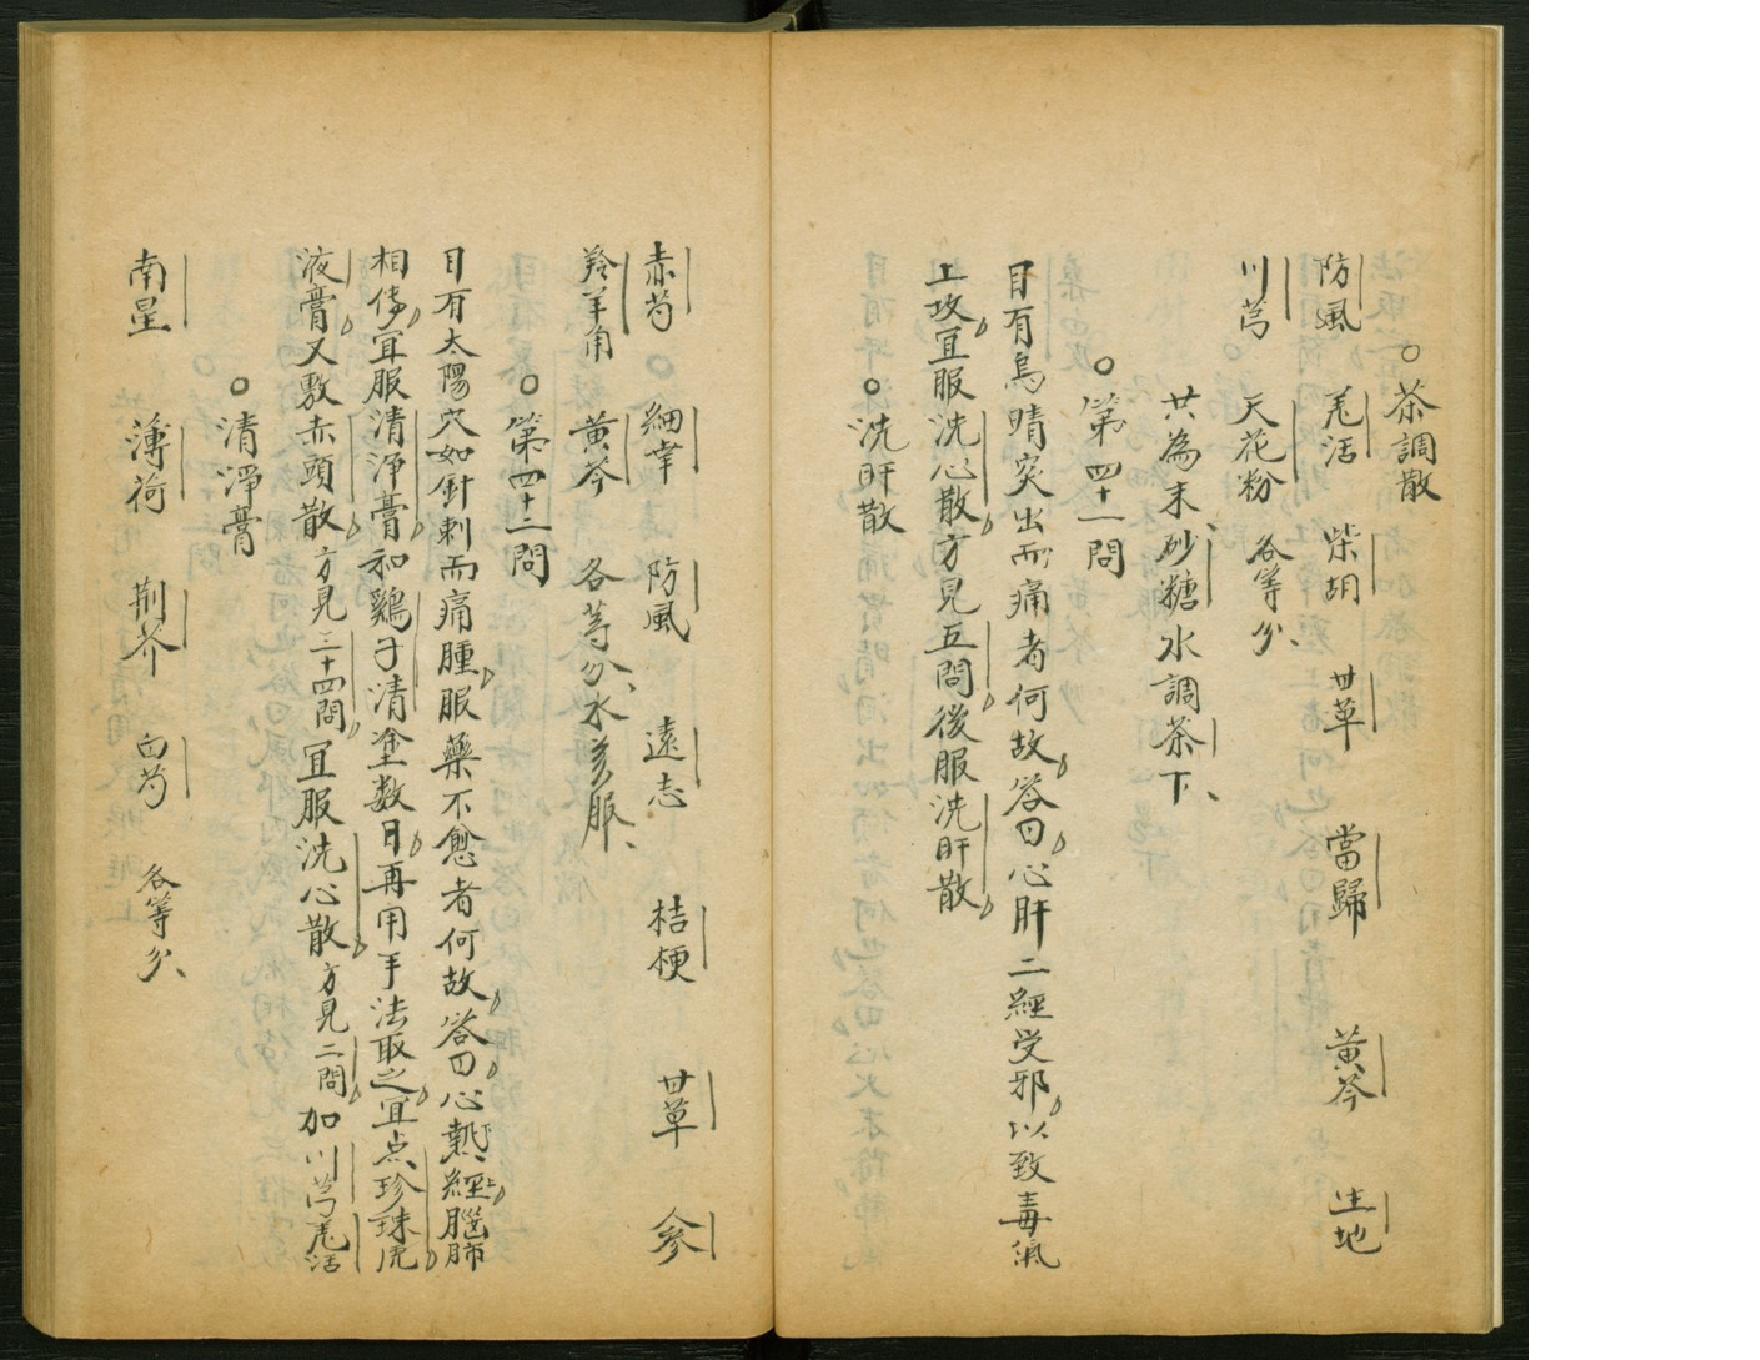 ○茶調散
防風 羌活 柴胡 甘草 當歸 黄芩 生地
川芎 天花粉 各等分、
共為末、砂糖水調茶下、
○第四十一問
目有烏睛突出而痛者何故答曰心肝二經受邪以致毒氣
上攻宜服洗心散方見五問後服洗肝散
○洗肝散
赤芍 細辛 防風 遠志 桔梗 甘草 參
羚羊角 黄芩 各等分、水煎服、
○第四十二問
目有太陽穴如針刺而痛腫服藥不愈者何故答曰心熱經腦肺
相傳宜服清淨膏和鷄子清塗数日再用手法取之宜点珍珠虎
液膏又敷赤頭散方見三十四問宜服洗心散方見二問加川芎羌活
○清淨膏
南星 薄荷 荆芥 白芍 各等分、